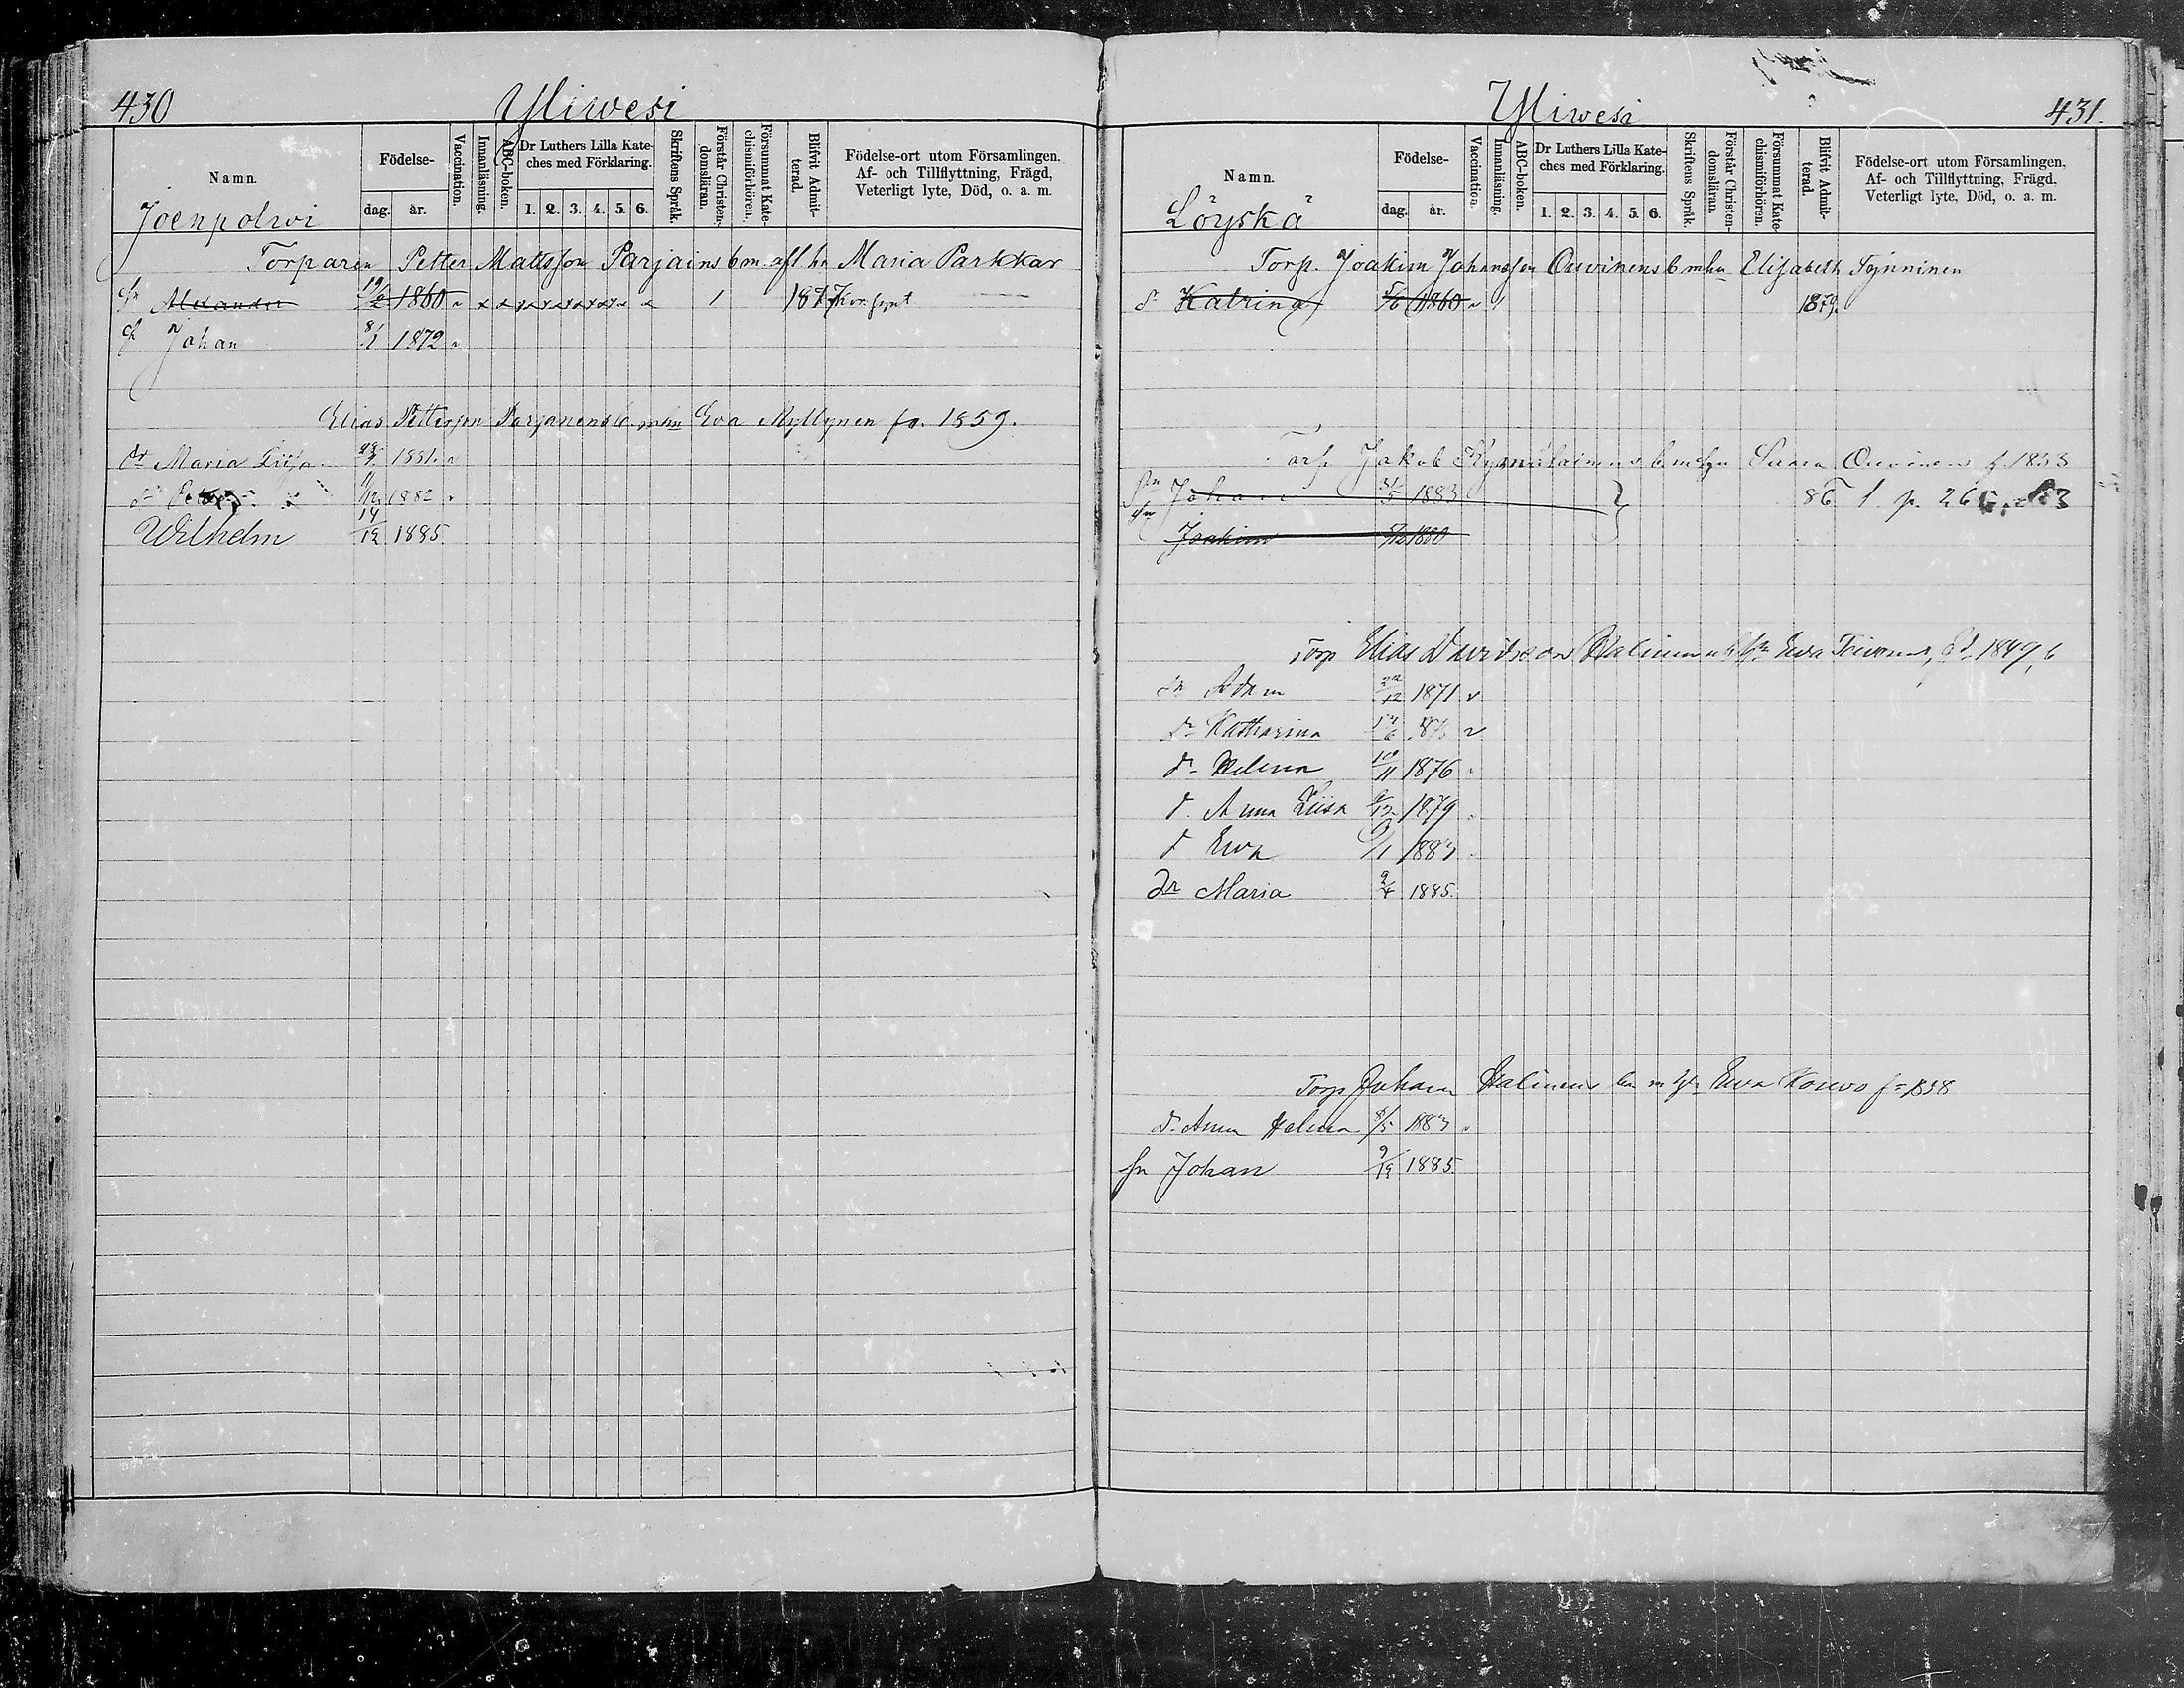 430 Yliwesi
Namn. Födelse- dag. år. Vaccination. Innanläsning. ABC-boken. Dr Luthers Lilla Kateches med Förklaring. 1. 2. 3. 4. 5. 6. Skriftens Språk. Förstår Christendomsläran. Försummat Katechismiförhören. Blifvit Admitterad. Födelse-ort utom Församlingen. Af- och Tillflyttning, Frägd, Veterligt lyte, Död, o. a. m.
Joenpolwi
Torparen Petter Mattsson Parjains b m afl hu Maria Parkkar
Sn Alexander 1860 x x x x x x x x x x 1 1877
Johan 8/1 1872
Elias Pettersson Parjanens b. m hu Eva Myllynen fö. 1859.
dr Maria Liisa 1881
1882
Wilhelm 14/12 1885.
Yliwesi 431.
Namn. Födelse- dag. år. Vaccination. Innanläsning. ABC-boken. Dr Luthers Lilla Kateches med Förklaring. 1. 2. 3. 4. 5. 6. Skriftens Språk. Förstår Christendomsläran. Försummat Katechismiförhören. Blifvit Admitterad. Födelse-ort utom Församlingen. Af- och Tillflyttning, Frägd, Veterligt lyte, Död, o. a. m.
Löyskä
Torp. Joakim Johansson Ouvinens b m hu Elisabeth Tynninen
d Katrina 5/6 1860 1 1879.
Torp Jakob b m hu f. 1853
Sn Johan 31/5 1883 86 f. p.
Sn Joakim 1880
Torp Elias Davidsson Ewa 1849
Sn Adam 22/12 1871
dr Katharina
dr Helena 10/11 1876
d Anna Liisa 1879
d Ewa 1883
Dr Maria 9/4 1885.
Torp Johan Halinens Ewa Korwo f. 1858
dr Anna Helena 8/5 1883
Sn Johan 9/12 1885